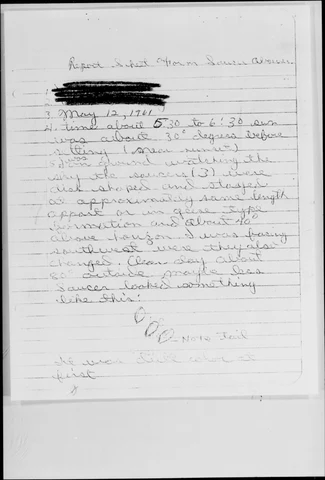 Report Sheet Form Saucer
3. May 12, 1961
4. time about 5:30 to 6:30 sun
was about 30° degrees before
sitting
5. I was ground watching the
sky the saucers (3) were
disk shaped and stayed
at approximately same length
appart or in geese type
formation and about 40°
above horizon I was facing
southwest were they also
changed. Clear day about
80° outside maybe less
saucer looked something
like this:
O-Note Tail
It was color at
first